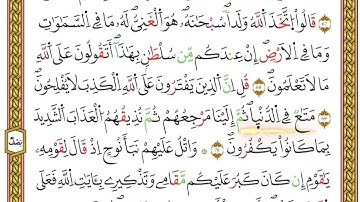 قَالُوا۟ ٱتَّخَذَ ٱللَّهُ وَلَدًۭا ۗ سُبْحَـٰنَهُۥ ۖ هُوَ ٱلْغَنِىُّ ۖ لَهُۥ مَا فِى ٱلسَّمَـٰوَٰتِ
وَمَا فِى ٱلْأَرْضِ ۚ إِنْ عِندَكُم مِّن سُلْطَـٰنٍۭ بِهَـٰذَآ ۚ أَتَقُولُونَ عَلَى ٱللَّهِ
مَا لَا تَعْلَمُونَ قُلْ إِنَّ ٱلَّذِينَ يَفْتَرُونَ عَلَى ٱللَّهِ ٱلْكَذِبَ لَا يُفْلِحُونَ
مَتَـٰعٌۭ فِى ٱلدُّنْيَا ثُمَّ إِلَيْنَا مَرْجِعُهُمْ ثُمَّ نُذِيقُهُمُ ٱلْعَذَابَ ٱلشَّدِيدَ
بِمَا كَانُوا۟ يَكْفُرُونَ ۞ وَٱتْلُ عَلَيْهِمْ نَبَأَ نُوحٍ إِذْ قَالَ لِقَوْمِهِۦ
يَـٰقَوْمِ إِن كَانَ كَبُرَ عَلَيْكُم مَّقَامِى وَتَذْكِيرِى بِـَٔايَـٰتِ ٱللَّهِ فَعَلَى